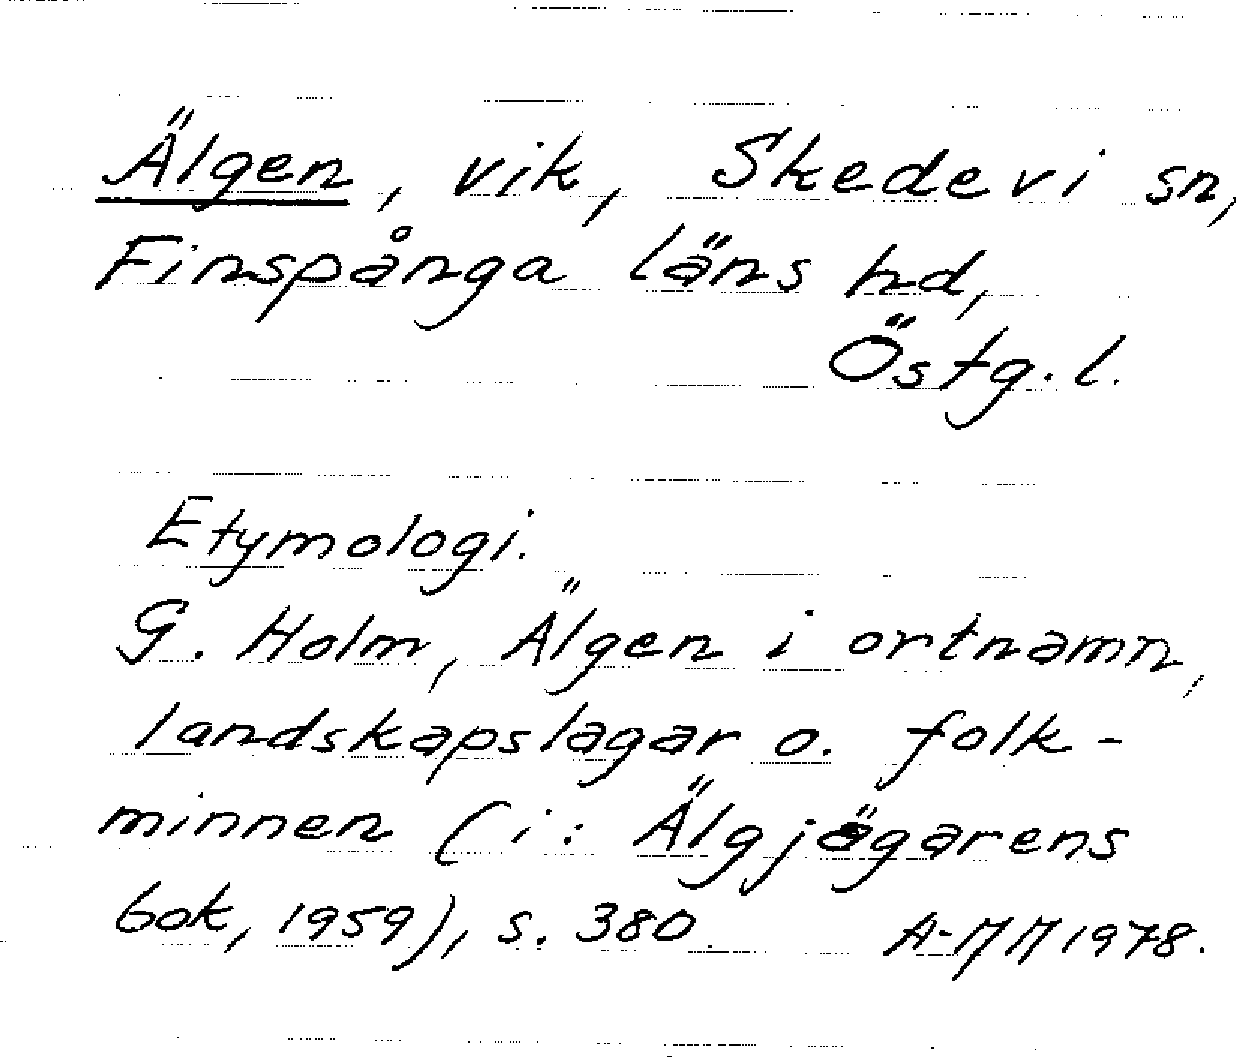 Älgen, vik, Skedevi sn,
Finspånga läns hd,
Östg. l.
Etymologi.
G. Holm, Älgen i ortnamn,
landskapslagar o. folk-
minnen (i: Älgjägarens
bok, 1959), s. 380.
A-MM 1978.